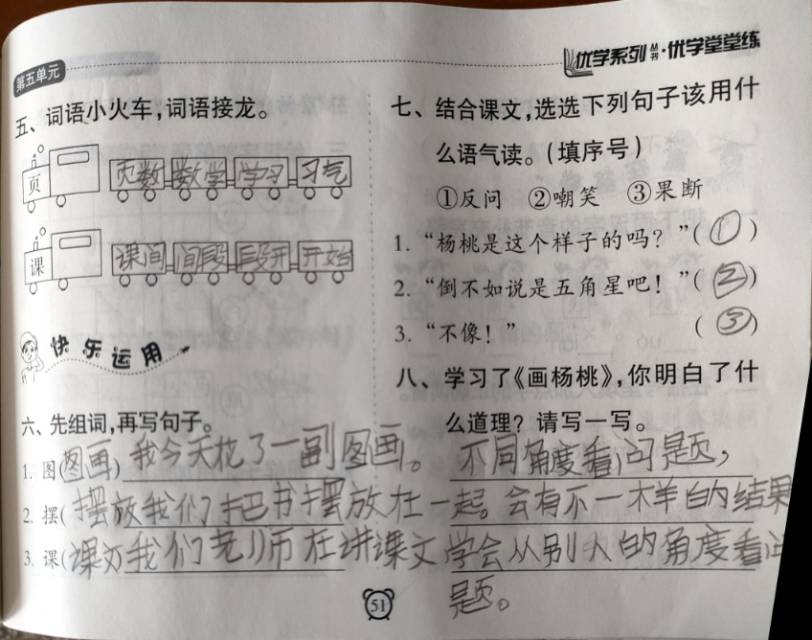 优学系列丛书·优学堂堂练
第五单元
五、词语小火车,词语接龙。
页 页数 数学 学习 习气
课 课间 间段 段开 开始
快乐运用
六、先组词,再写句子。
1. 图(图画) 我今天花了一副图画。
2. 摆(摆放 我们把书摆放在一起。
3. 课(课文 我们老师在讲课文
七、结合课文,选选下列句子该用什
么语气读。(填序号)
①反问 ②嘲笑 ③果断
1. “杨桃是这个样子的吗?”(①)
2. “倒不如说是五角星吧!”(②)
3. “不像!” (③)
八、学习了《画杨桃》,你明白了什
么道理?请写一写。
不同角度看问题,
会有不一样的结果
学会从别人的角度看问
题。
51